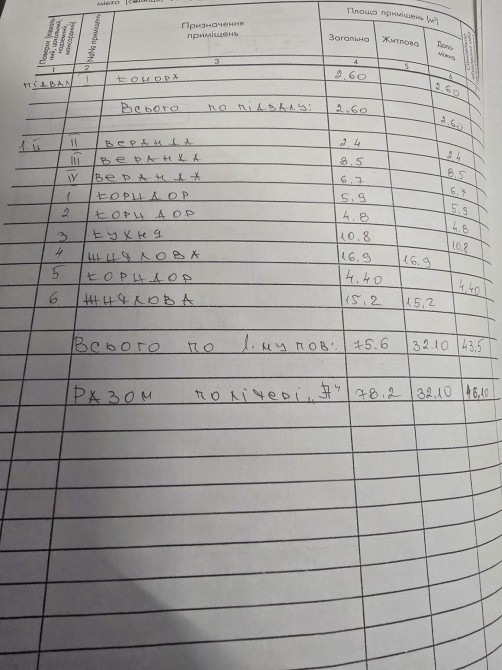 Призначення приміщень
Площа приміщень (м²)
№№ приміщень
Загальна Житлова Допоміжна
1 2 3 4 5 6
підвал I комора 2.60 2.60
Всього по підвалу: 2.60 2.60
1.й II веранда 2.4 2.4
III веранда 8.5 8.5
IV веранда 6.7 6.7
1 коридор 5.9 5.9
2 коридор 4.8 4.8
3 кухня 10.8 10.8
4 житлова 16.9 16.9
5 коридор 4.40 4.40
6 житлова 15.2 15.2
Всього по 1.му пов: 75.6 32.10 43.5
Разом по літері „А" 78.2 32.10 46.10